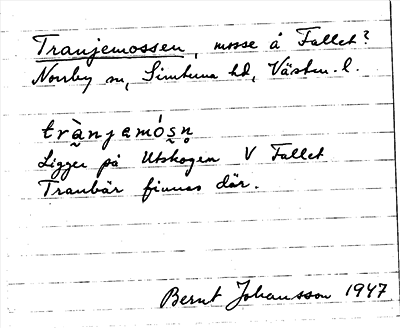 Tranjemossen, mosse å Fallet?
Norrby sn, Simtuna hd, Västm. l.
trànjemósn̥
Ligger på Utskogen V Fallet
Tranbär finnas där.
Bernt Johansson 1947